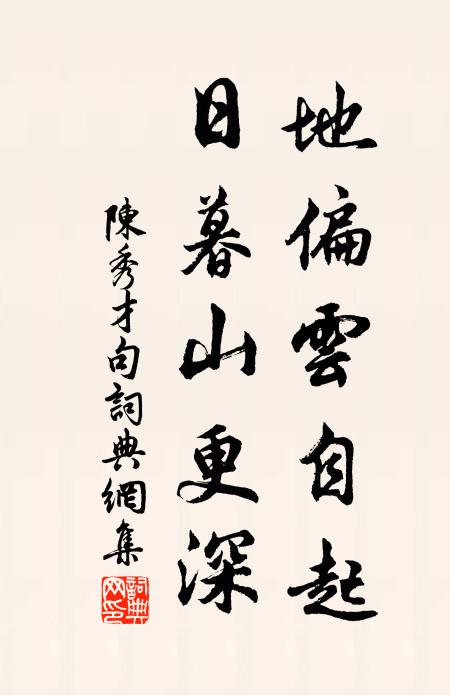 地偏雲自起
日暮山更深
陳秀才句詞典網集
詞典
网印